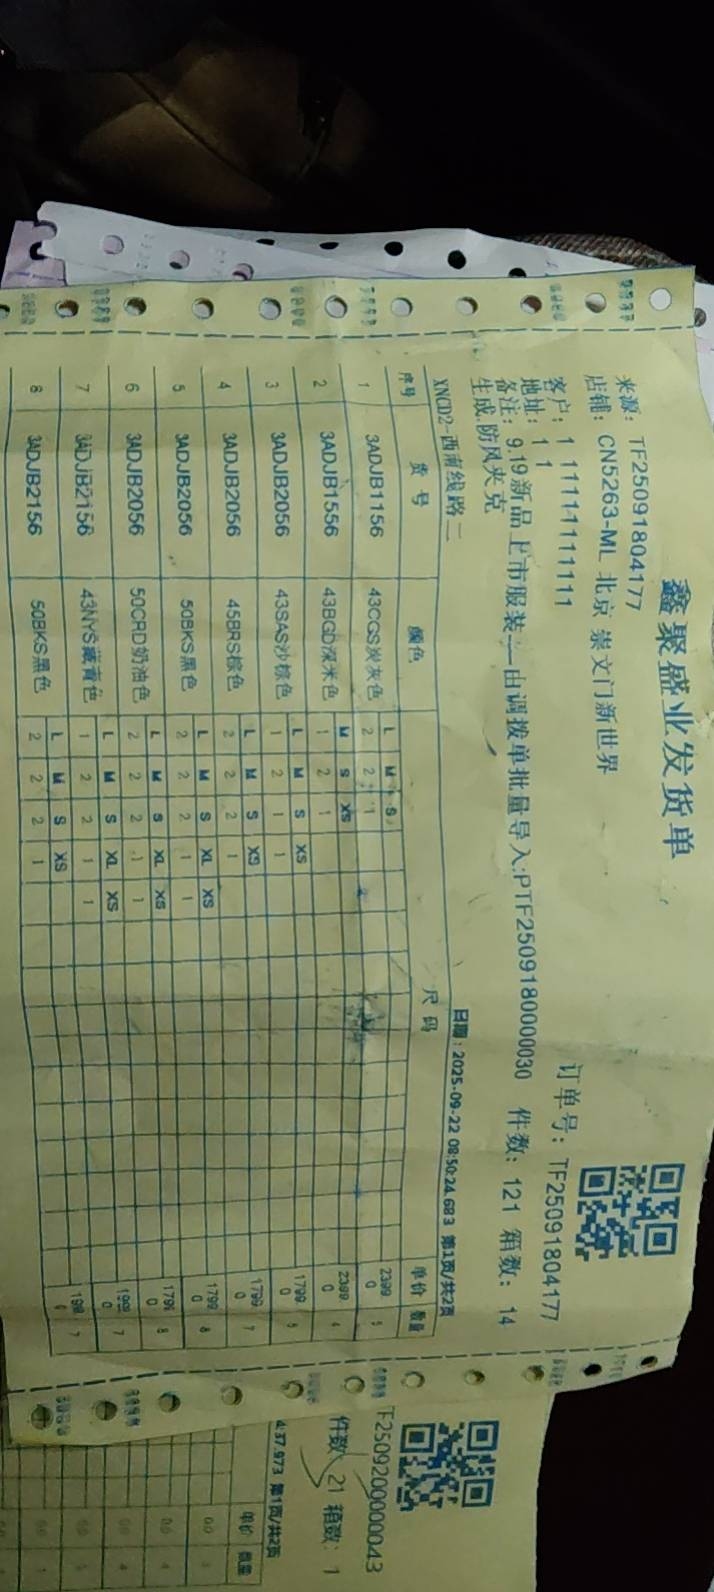 鑫聚盛业发货单
来源：TF25091804177
店铺：CN5263-ML 北京 崇文门新世界
订单号：TF25091804177
客户：1 11111111111
地址：1 1
备注：9.19新品上市服装——由调拨单批量导入:PTF2509180000030 件数：121 箱数：14
生成.防风夹克
XNCD2-西南线路二 日期：2025-09-22 08:50:24.683 第1页/共2页
序号 货号 颜色 尺码 单价 数量
L M S
1 3ADJB1156 43CGS炭灰色 2 2 1 2399.0 5
M S XS
2 3ADJB1556 43BGD深米色 1 2 1 2399.0 4
L M S XS
3 3ADJB2056 43SAS沙棕色 1 2 1 1 1799.0 5
L M S XS
4 3ADJB2056 45BRS棕色 2 2 2 1 1799.0 7
L M S XL XS
5 3ADJB2056 50BKS黑色 2 2 2 1 1 1799.0 8
L M S XL XS
6 3ADJB2056 50CRD奶油色 2 2 2 1 1 8
L M S XL XS
7 3ADJB2156 43NYS藏青色 1 2 2 1 1 7
L M S XS
8 3ADJB2156 50BKS黑色 2 2 2 1 7
F2509200000043
件数：21 箱数：1
4:37.973 第1页/共2页
单价 数量